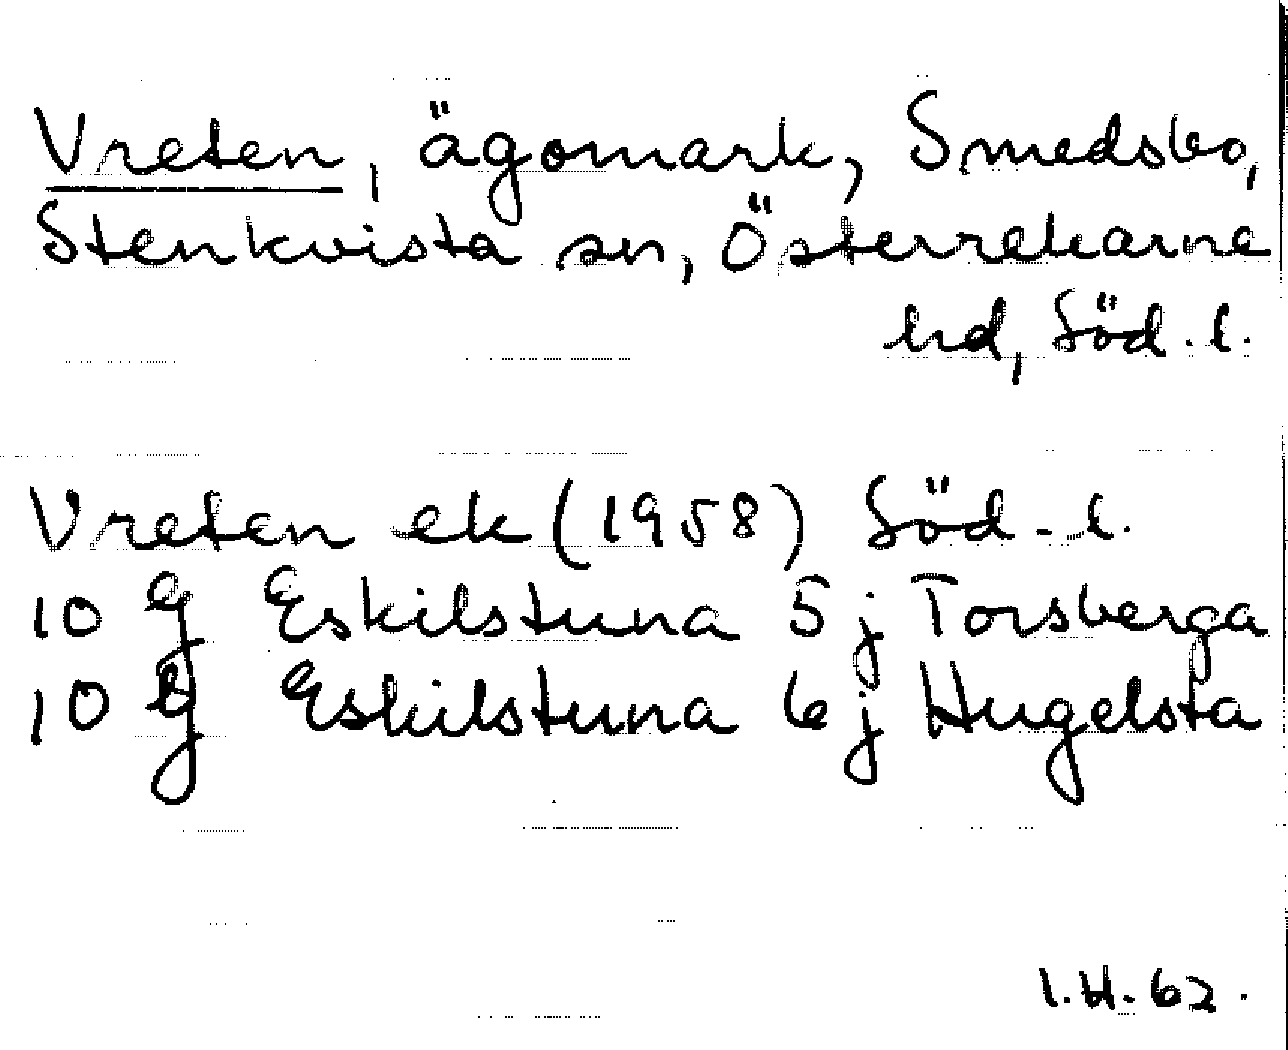 Vreten, ägomark, Smedsbo,
Stenkvista sn, Österrekarne
hd, Söd. l.
Vreten ek (1958) Söd. l.
10 G Eskilstuna 5 j Torsberga
10 G Eskilstuna 6 j Hugelsta
I.H. 62.